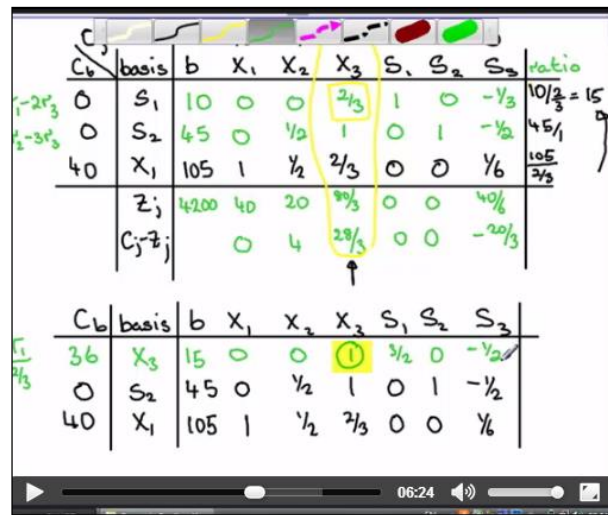 Cb basis b X₁ X₂ X₃ S₁ S₂ S₃ ratio
r₁-2r₃ 0 S₁ 10 0 0 2/3 1 0 -1/3 10/2/3 = 15
r₂-3r₃ 0 S₂ 45 0 1/2 1 0 1 -1/2 45/1
40 X₁ 105 1 1/2 2/3 0 0 1/6 105/2/3
Zj 4200 40 20 80/3 0 0 40/6
Cj-Zj 0 4 28/3 0 0 -20/3
Cb basis b X₁ X₂ X₃ S₁ S₂ S₃
r₁/2/3 36 X₃ 15 0 0 1 3/2 0 -1/2
0 S₂ 45 0 1/2 1 0 1 -1/2
40 X₁ 105 1 1/2 2/3 0 0 1/6
06:24